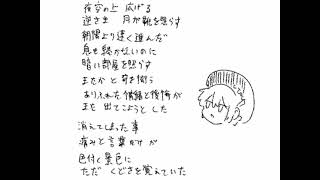 夜空の上 広げる
逆さま 月が靴を照らす
朝陽より遠く進んだ
息も絶か絶いのに
暗い部屋を照らす
またかと 首を掬う
ありふれた情緒と後悔が
まを出てこようとした
消えてしまった事
痛みと言葉だけが
色付く景色に
ただ くどさを覚えていた